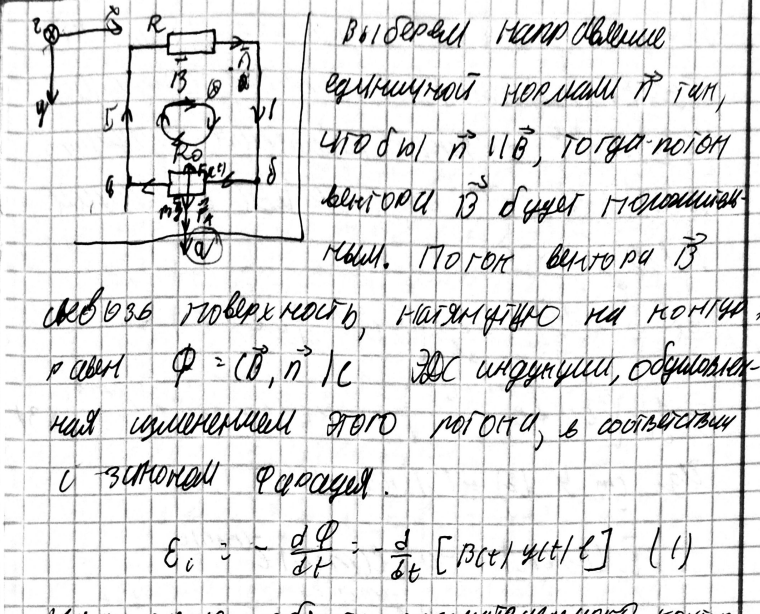 Выберем направление
R
единичной нормали n⃗ так,
чтобы n⃗ || B⃗, тогда поток
вектора B⃗ будет положитель-
ным. Поток вектора B⃗
сквозь поверхность, натянутую на контур,
равен Ф = (B⃗, n⃗) С ЭДС индукции, обусловлен-
ная изменением этого потока, в соответствии
с законом Фарадея.
εi = - dФ/dt = - d/dt [B(t) y(t) l] (1)